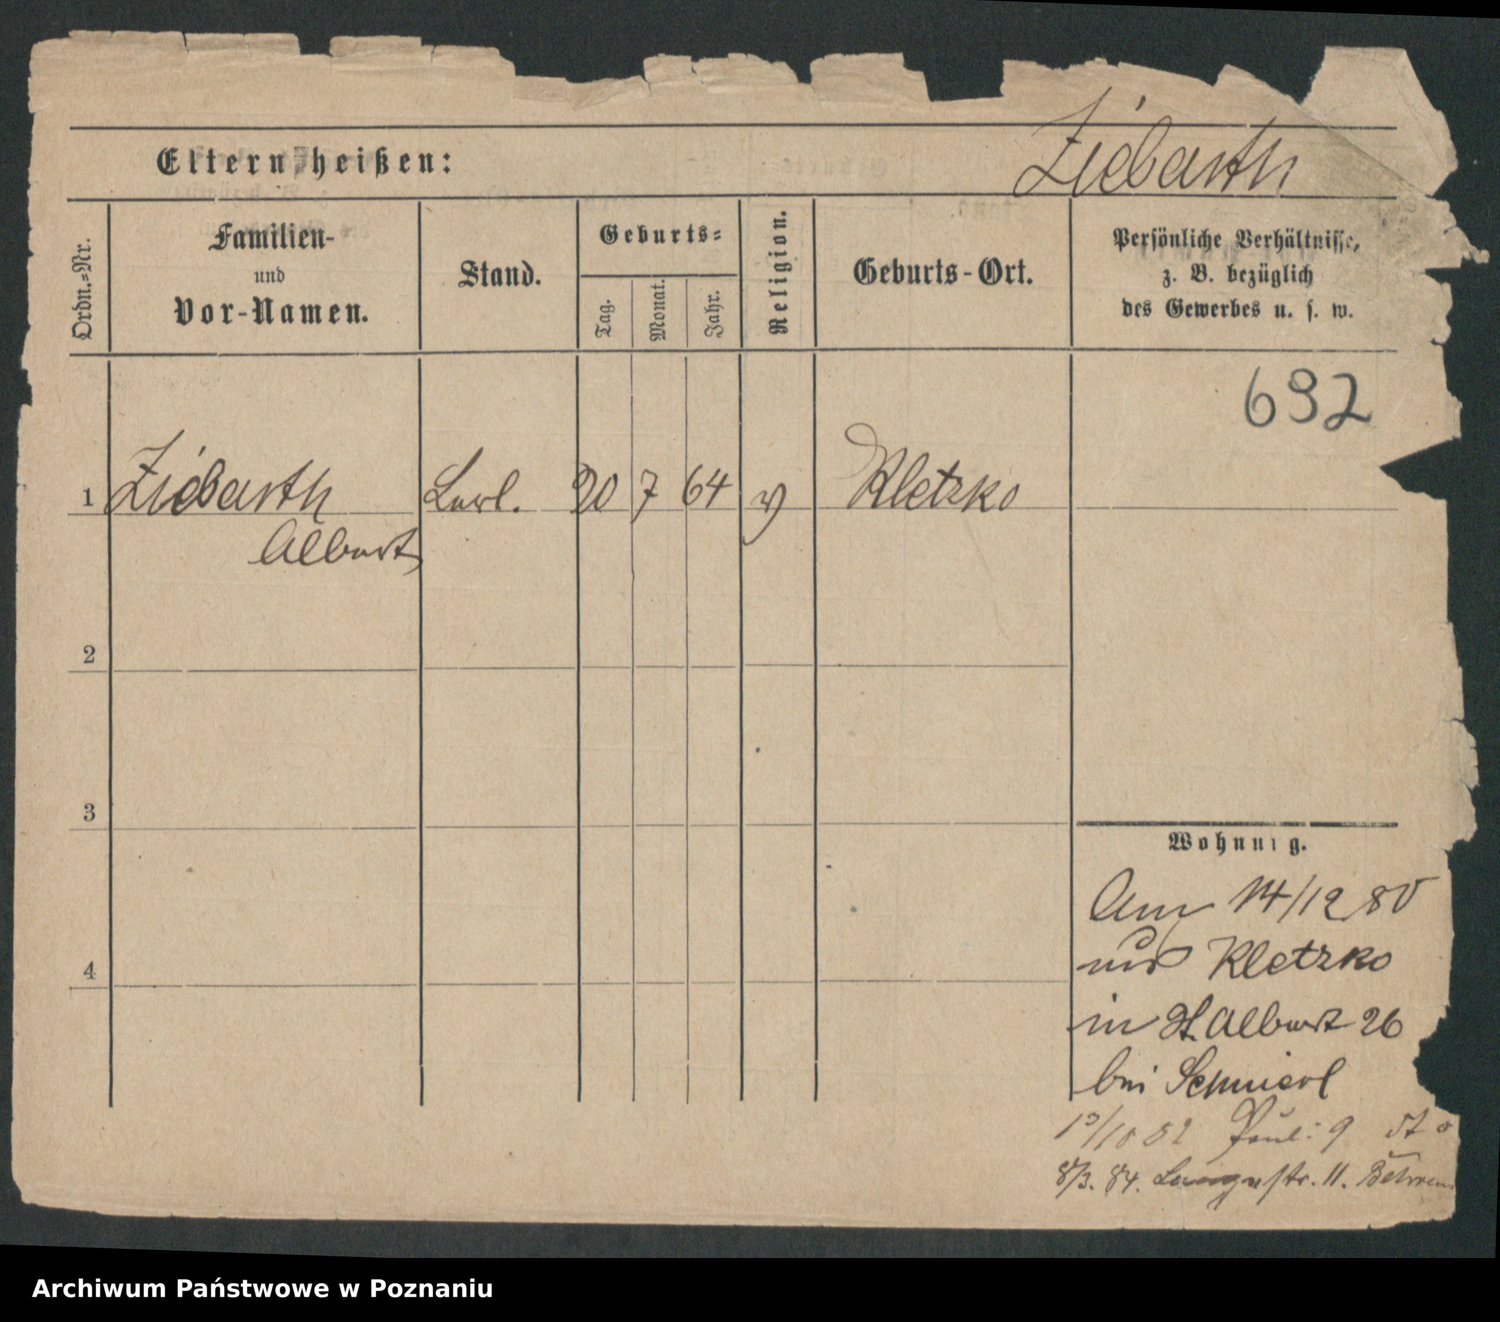 Eltern heißen:
Ziebarth
Ordn.-Nr.
Familien-
und
Vor-Namen.
Stand.
Geburts-
Tag.
Monat.
Jahr.
Religion.
Geburts-Ort.
Persönliche Verhältnisse,
z. B. bezüglich
des Gewerbes u. s. w.
692
1 Ziebarth 20 7 64 Kletzko
Albert
2
3
4
Wohnung.
14/12 80
aus Kletzko
in St. Albert 26
bei
82 9
8/3. 84. Langestr. 11.
Archiwum Państwowe w Poznaniu